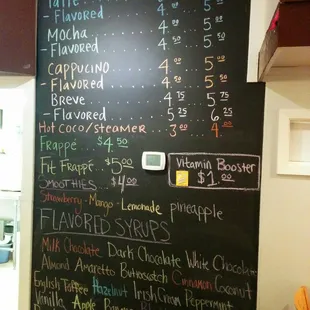 Latte
- Flavored ..... 4.50 5.50
Mocha ..... 4.50 5.50
- Flavored
CAPPUCINO ..... 4. 5.
- Flavored ..... 4.50 5.50
Breve ..... 4.75 5.75
- Flavored ..... 5.25 6.25
Hot Coco/steamer ..... 3.00 4.00
Frappé ..... $4.50
Fit Frappé ... $5.00
SMOOTHIES $4.00
Vitamin Booster
$1.00
Strawberry - Mango - Lemonade pineapple
FLAVORED SYRUPS
Milk Chocolate Dark Chocolate White Chocolate
Almond Amaretto Butterscotch Cinnamon Coconut
English Toffee Hazelnut Irish Cream Peppermint
Vanilla Apple